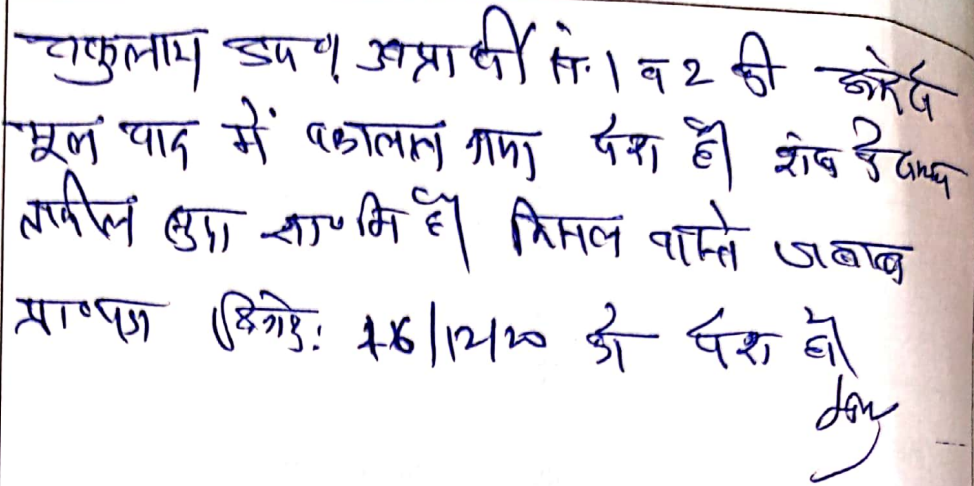 वकुलाय उप० अप्रार्थी सं. 1 व 2 की ओर से
मूल वाद में वकालतनामा पेश है। शेष के सम्मन
तामील शुदा शामिल है। मिसल वास्ते जबाब
प्रा०पत्र दिनांक: 16/12/20 को पेश हो।